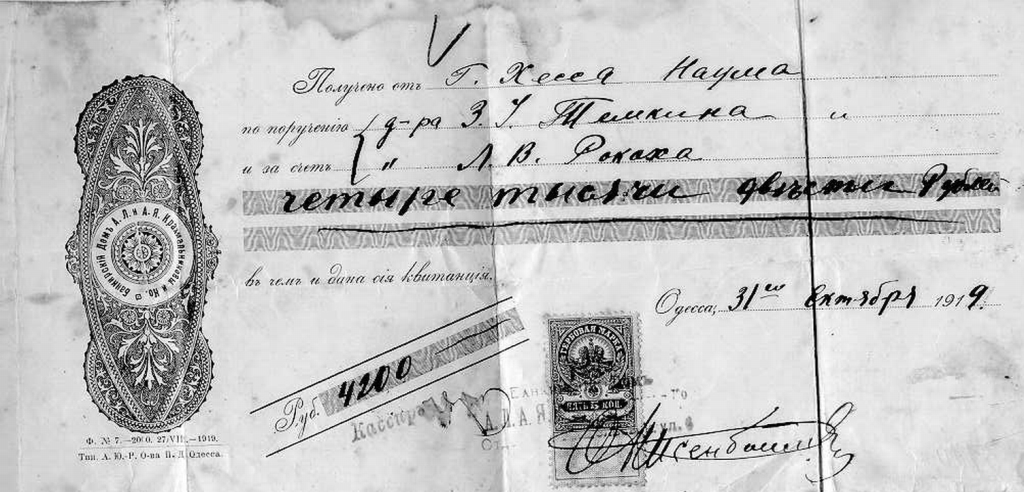 Получено отъ Г. Хесса Наума
по порученію д-ра З. І. Темкина и
и за счетъ " Л. В. Рокаха
четыре тысячи двѣсти Рублей
въ чемъ и дана сія квитанція.
Одесса, 31го Октября 1919.
Руб. 4200
Кассиръ
А. Л. А. Я.
МАРКА
15 КОП
Банкирскій Домъ А. Л. и А. Я. и Ко.
Ф. № 7.—2000. 27/VIII—1919.
Тип. А. Ю.-Р. О-ва П. Д. Одесса.